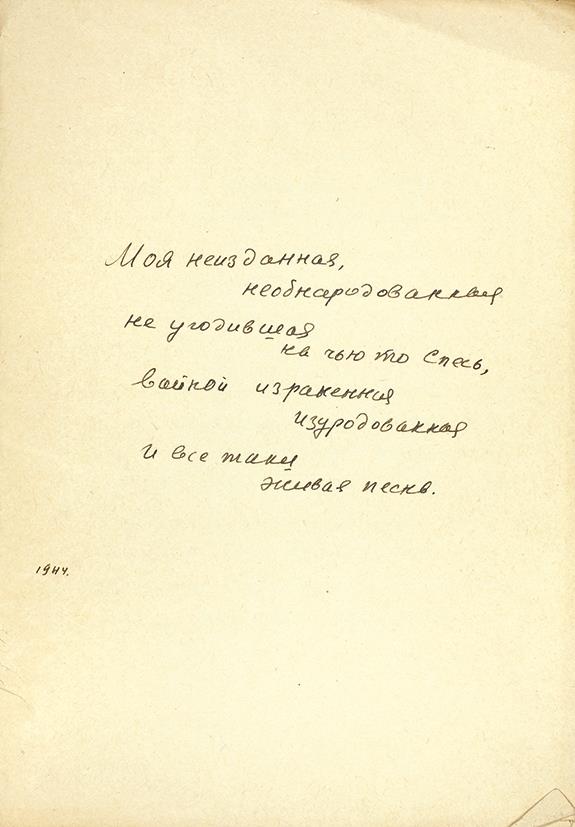 Моя неизданная,
необнародованная
не угодившая
на чью то спесь,
войной израненная
изуродованная
и все таки
живая песнь.
1944.